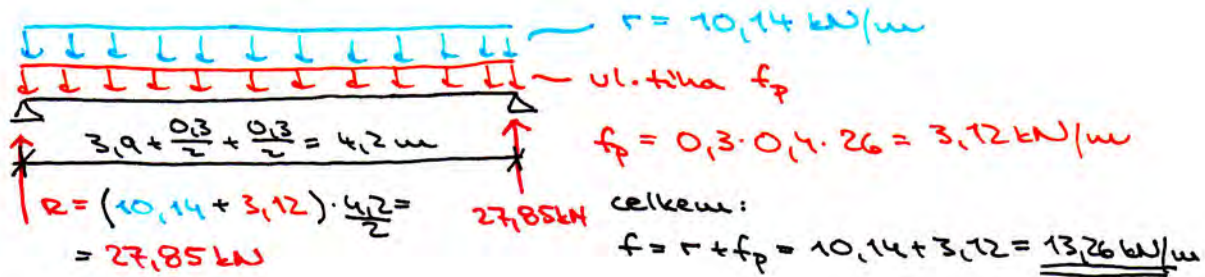 r = 10,14 kN/m
vl. tíha fp
3,9 + 0,3/2 + 0,3/2 = 4,2 m
fp = 0,3 · 0,4 · 26 = 3,12 kN/m
R = (10,14 + 3,12) · 4,2/2 =
= 27,85 kN
27,85 kN
celkem:
f = r + fp = 10,14 + 3,12 = 13,26 kN/m